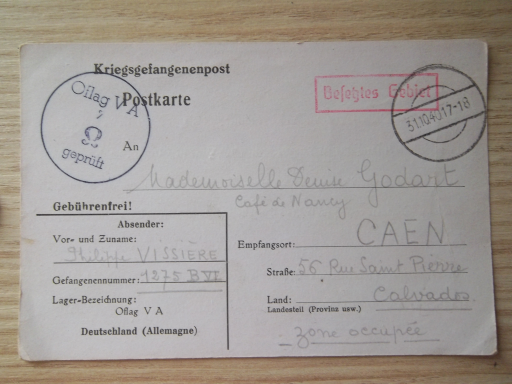 Kriegsgefangenenpost
Postkarte
Oflag V A
2
geprüft
Besetztes Gebiet
31.10.40 17-18
An
Mademoiselle Denise Godart
Café de Nancy
Gebührenfrei!
Absender:
Vor- und Zuname:
Philippe VISSIÈRE
Gefangenennummer: 1275 B VI
Lager-Bezeichnung:
Oflag V A
Deutschland (Allemagne)
Empfangsort: CAEN
Straße: 56 Rue Saint Pierre
Land: Calvados
Landesteil (Provinz usw.)
– zone occupée